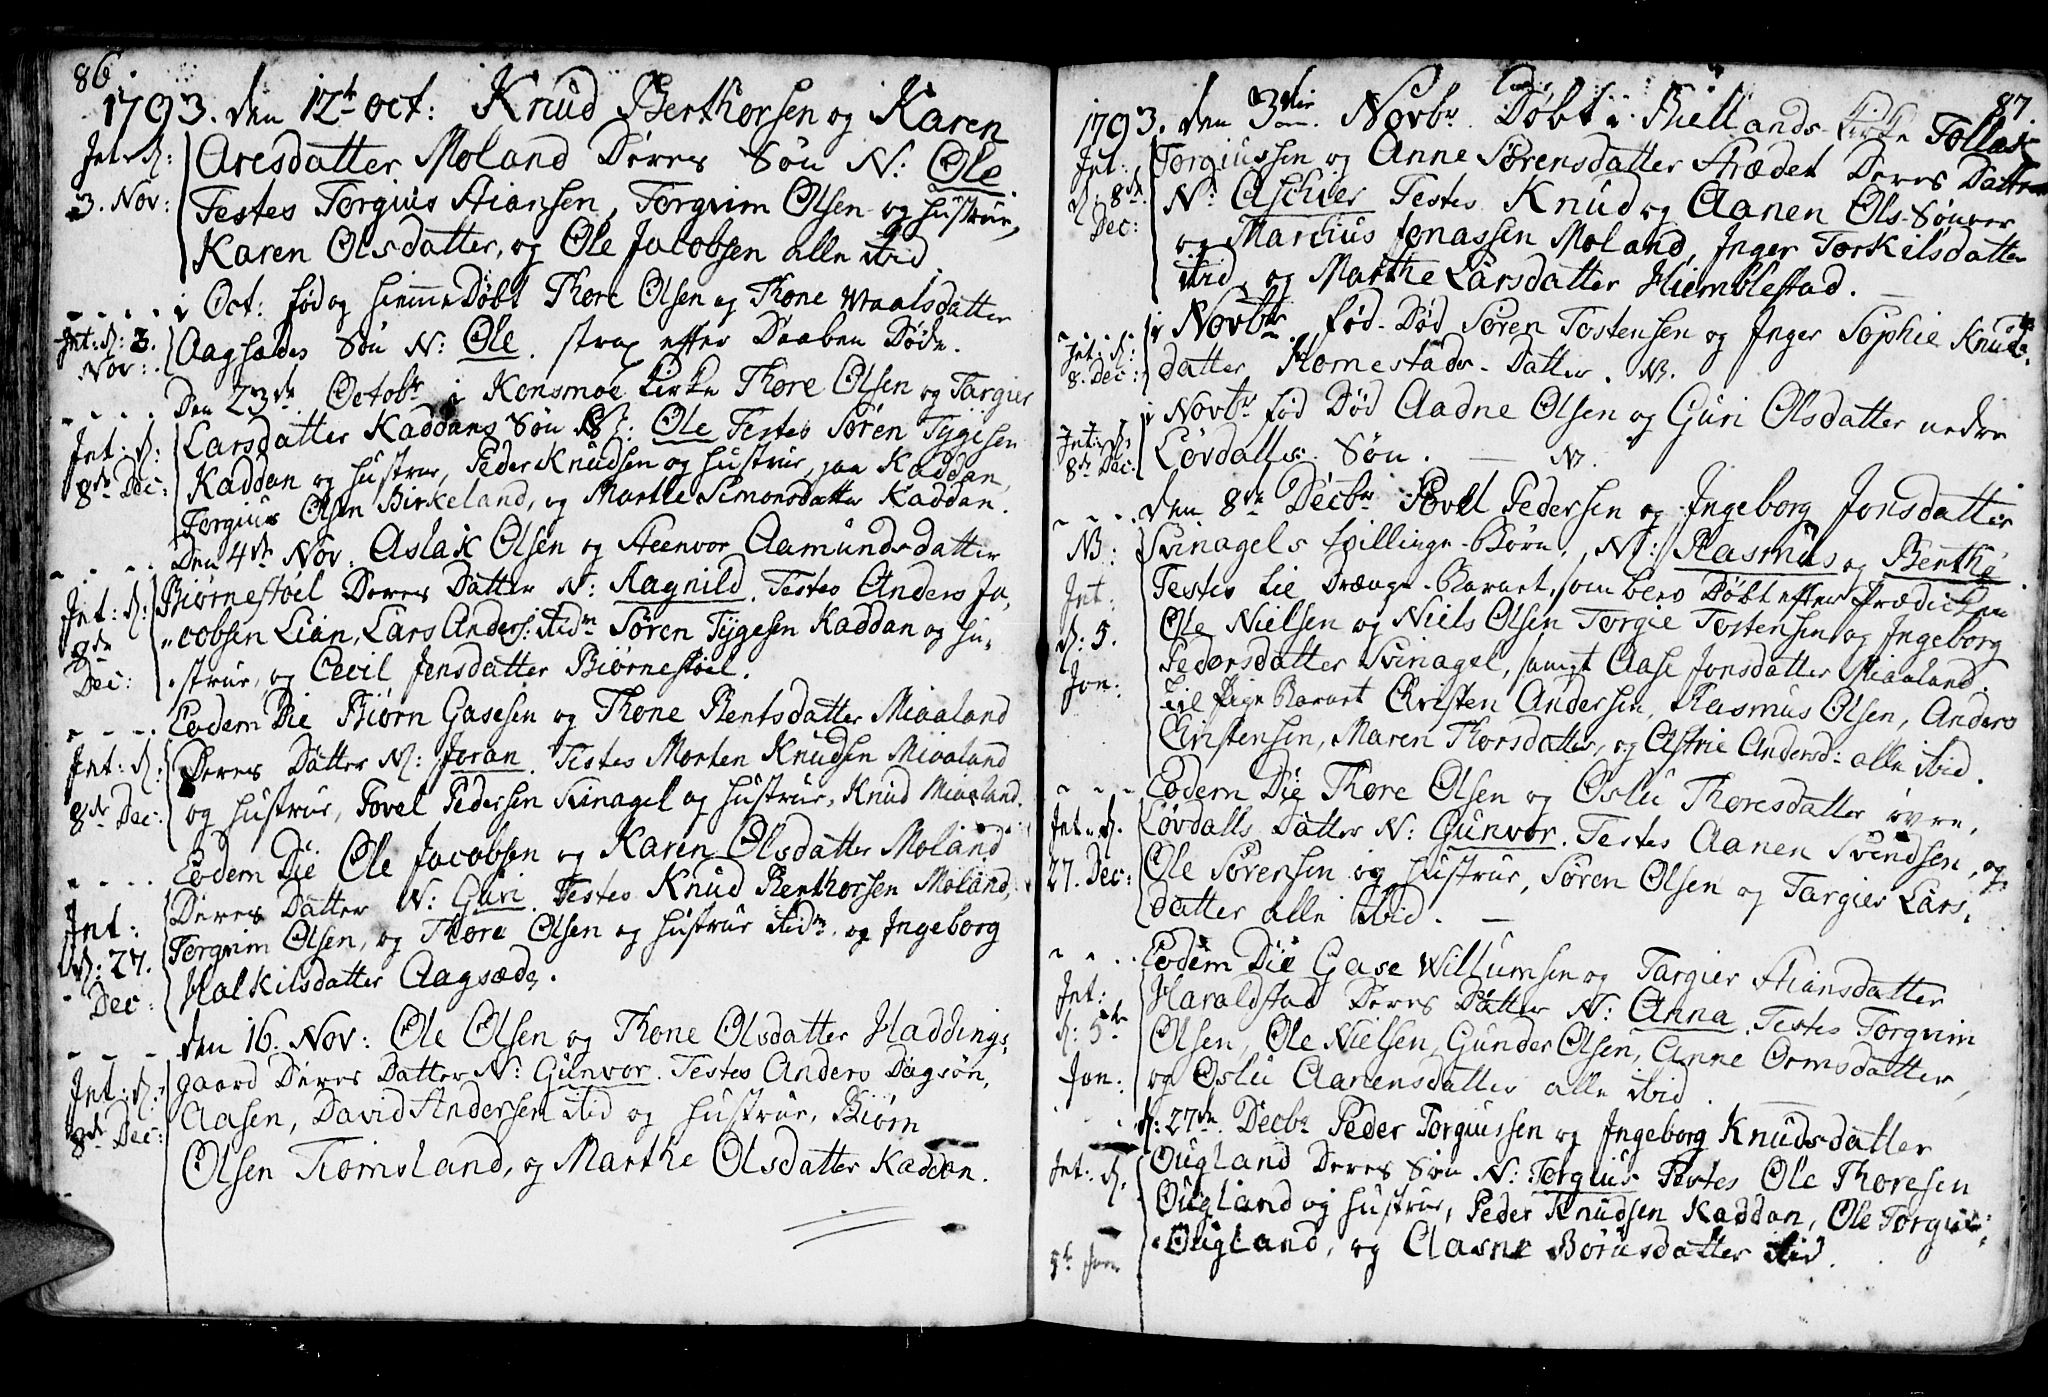 86
1793. den 12t Oct: Knud Berthorsen og Karen
Aresdatter Moland Deres Søn N: Ole
Testes Torgius Stiansen, Torgrim Olsen og hustrue,
Karen Olsdatter, og Ole Jacobsen alle ibid.
Int. d:
3. Nov:
i Oct: fød og hiemmeDøbt Thore Olsen og Thone Waalsdatter
Aagsædes Søn N: Ole. strax efter Daaben Døde.
Int: d: 3.
Nov:
Den 23de Octobr i Konsmoe Kirke Thore Olsen og Targier
Larsdatter Kaddans Søn N: Ole Testes Søren Tygesen
Kaddan og hustrue, Peder Knudsen og hustrue, paa Kaddan,
Torgius Olsen Birkeland, og Marthe Simonsdatter Kaddan.
Int: d:
8de Dec:
Den 4de Nov: Aslak Olsen og Steenvor Aamundsdatter
Biørnestøel Deres Datter N: Ragnild. Testes Anders Ja-
cobsen Lian, Lars Anders: ibidm Søren Tygesen Kaddan og hu-
strue, og Cecil Jensdatter Biørnestøel.
Int: d:
8de
Dec:
Eodem Die Biørn Gasesen og Thone Bentsdatter Miaaland
Deres Datter N: Joran. Testes Morten Knudsen Miaaland
og hustrue, Povel Pedersen Svinagel og hustrue, Knud Miaaland.
Int: d:
8de Dec:
Eodem Die Ole Jacobsen og Karen Olsdatter Moland
Deres Datter N: Guri. Testes Knud Berthorsen Moland,
Torgrim Olsen, og Thore Olsen og hustrue ibidm. og Ingeborg
Halkilsdatter Aagsæde.
Int:
d: 27.
Dec:
den 16. Nov: Ole Olsen og Thone Olsdatter Haddings-
gaard Deres Datter N: Gunvor. Testes Anders Dagsøn,
Aasen, David Andersen ibid og hustrue, Biørn
Olsen Tromsland, og Marthe Olsdatter Kaddan.
Int: d:
8de Dec:
87.
1793. den 3die Novbr Døbt i Biellands Kirke Tollak
Torgiussen og Anne Sørensdatter Strædet Deres Datter
N: Aschier Testes Knud og Aanen Ols-Sønner
og Marcius Jonassen Moland, Inger Torkelsdatter
ibid, og Marthe Larsdatter Hiemblestad.
Int:
d: 8de
Dec:
i Novbr fød-Død Søren Tostensen og Inger Sophie Knuds-
datter Homestads-Datter. N.
Int: d:
8. Dec:
i Novbr fød Død Aadne Olsen og Guri Olsdatter nedre
Løvdalls Søn. N.
Int: d:
8de Dec:
den 8de Decbr Povel Pedersen og Ingeborg Jonsdatter
Svinagels tvillinge-Børn, N: Rasmus og Berthe
Testes til Drænge-Barnet, som blev Døbt efter Prædicken
Ole Nielsen og Niels Olsen Torgie Tostensen og Ingeborg
Pedersdatter Svinagel, samt Aase Jonsdatter Miaaland.
til Pige Barnet Christen Andersen, Rasmus Olsen, Anders
Christensen, Maren Thorsdatter, og Astrie Andersd: alle ibid.
NB:
Int:
d: 5.
Jan:
Eodem Die Thore Olsen og Oslu Thoresdatter øvre,
Løvdalls Datter N: Gunvor. Testes Aanen Svendsen, og
Ole Sørensen og hustrue, Søren Olsen og Targier Lars-
datter alle ibid.
Int. d.
27. Dec:
Eodem Die Gase Willumsen og Targier Stiansdatter
Haraldstad Deres Datter N: Anna. Testes Torgrim
Olsen, Ole Nielsen, Gunder Olsen, Anne Ormsdatter,
og Oslu Aanensdatter alle ibid.
Int:
d: 5te
Jan:
d: 27de Decbr Peder Torgiussen og Ingeborg Knudsdatter
Øugland Deres Søn N: Torgius Testes Ole Thoresen
Øugland og hustrue, Peder Knudsen Kaddan, Ole Torgius-
Øugland, og Aasne Børusdatter ibid.
Int. d.
5t